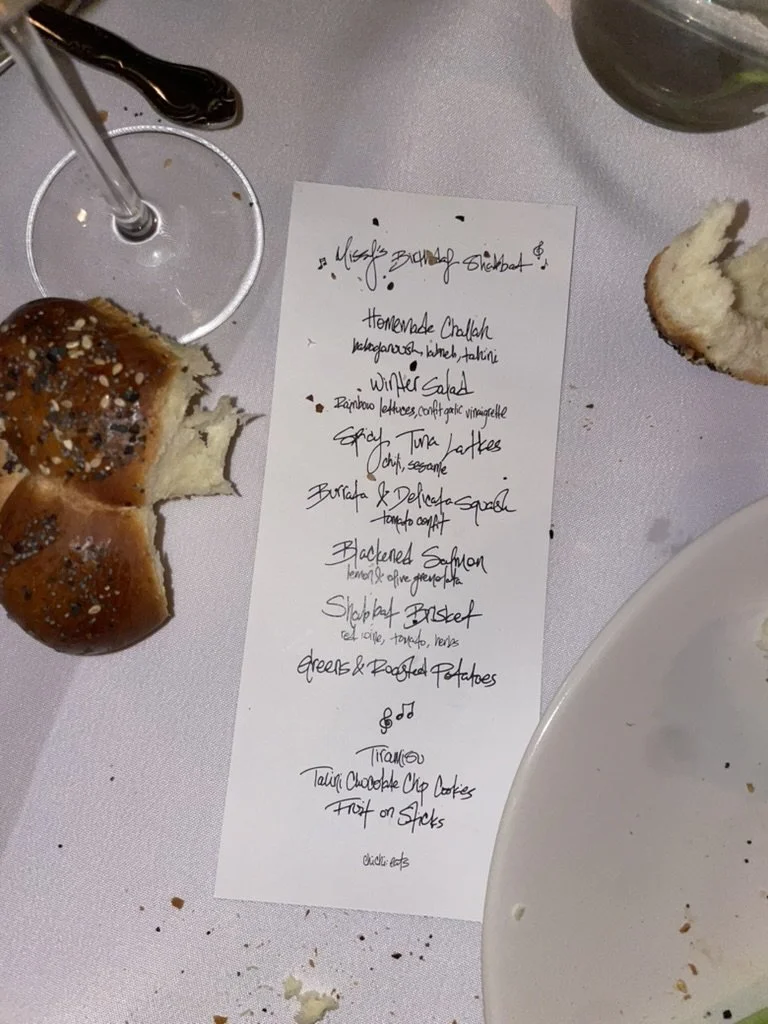 Missy's Birthday Shabbat
Homemade Challah
babaganoush, labneh, tahini
Winter Salad
Rainbow lettuces, confit garlic vinaigrette
Spicy Tuna Latkes
chili, sesame
Burrata & Delicata Squash
tomato confit
Blackened Salmon
lemon & olive gremolata
Shabbat Brisket
red wine, tomato, herbs
Greens & Roasted Potatoes
Tiramisu
Tahini Chocolate Chip Cookies
Fruit on Sticks
chichi.eats